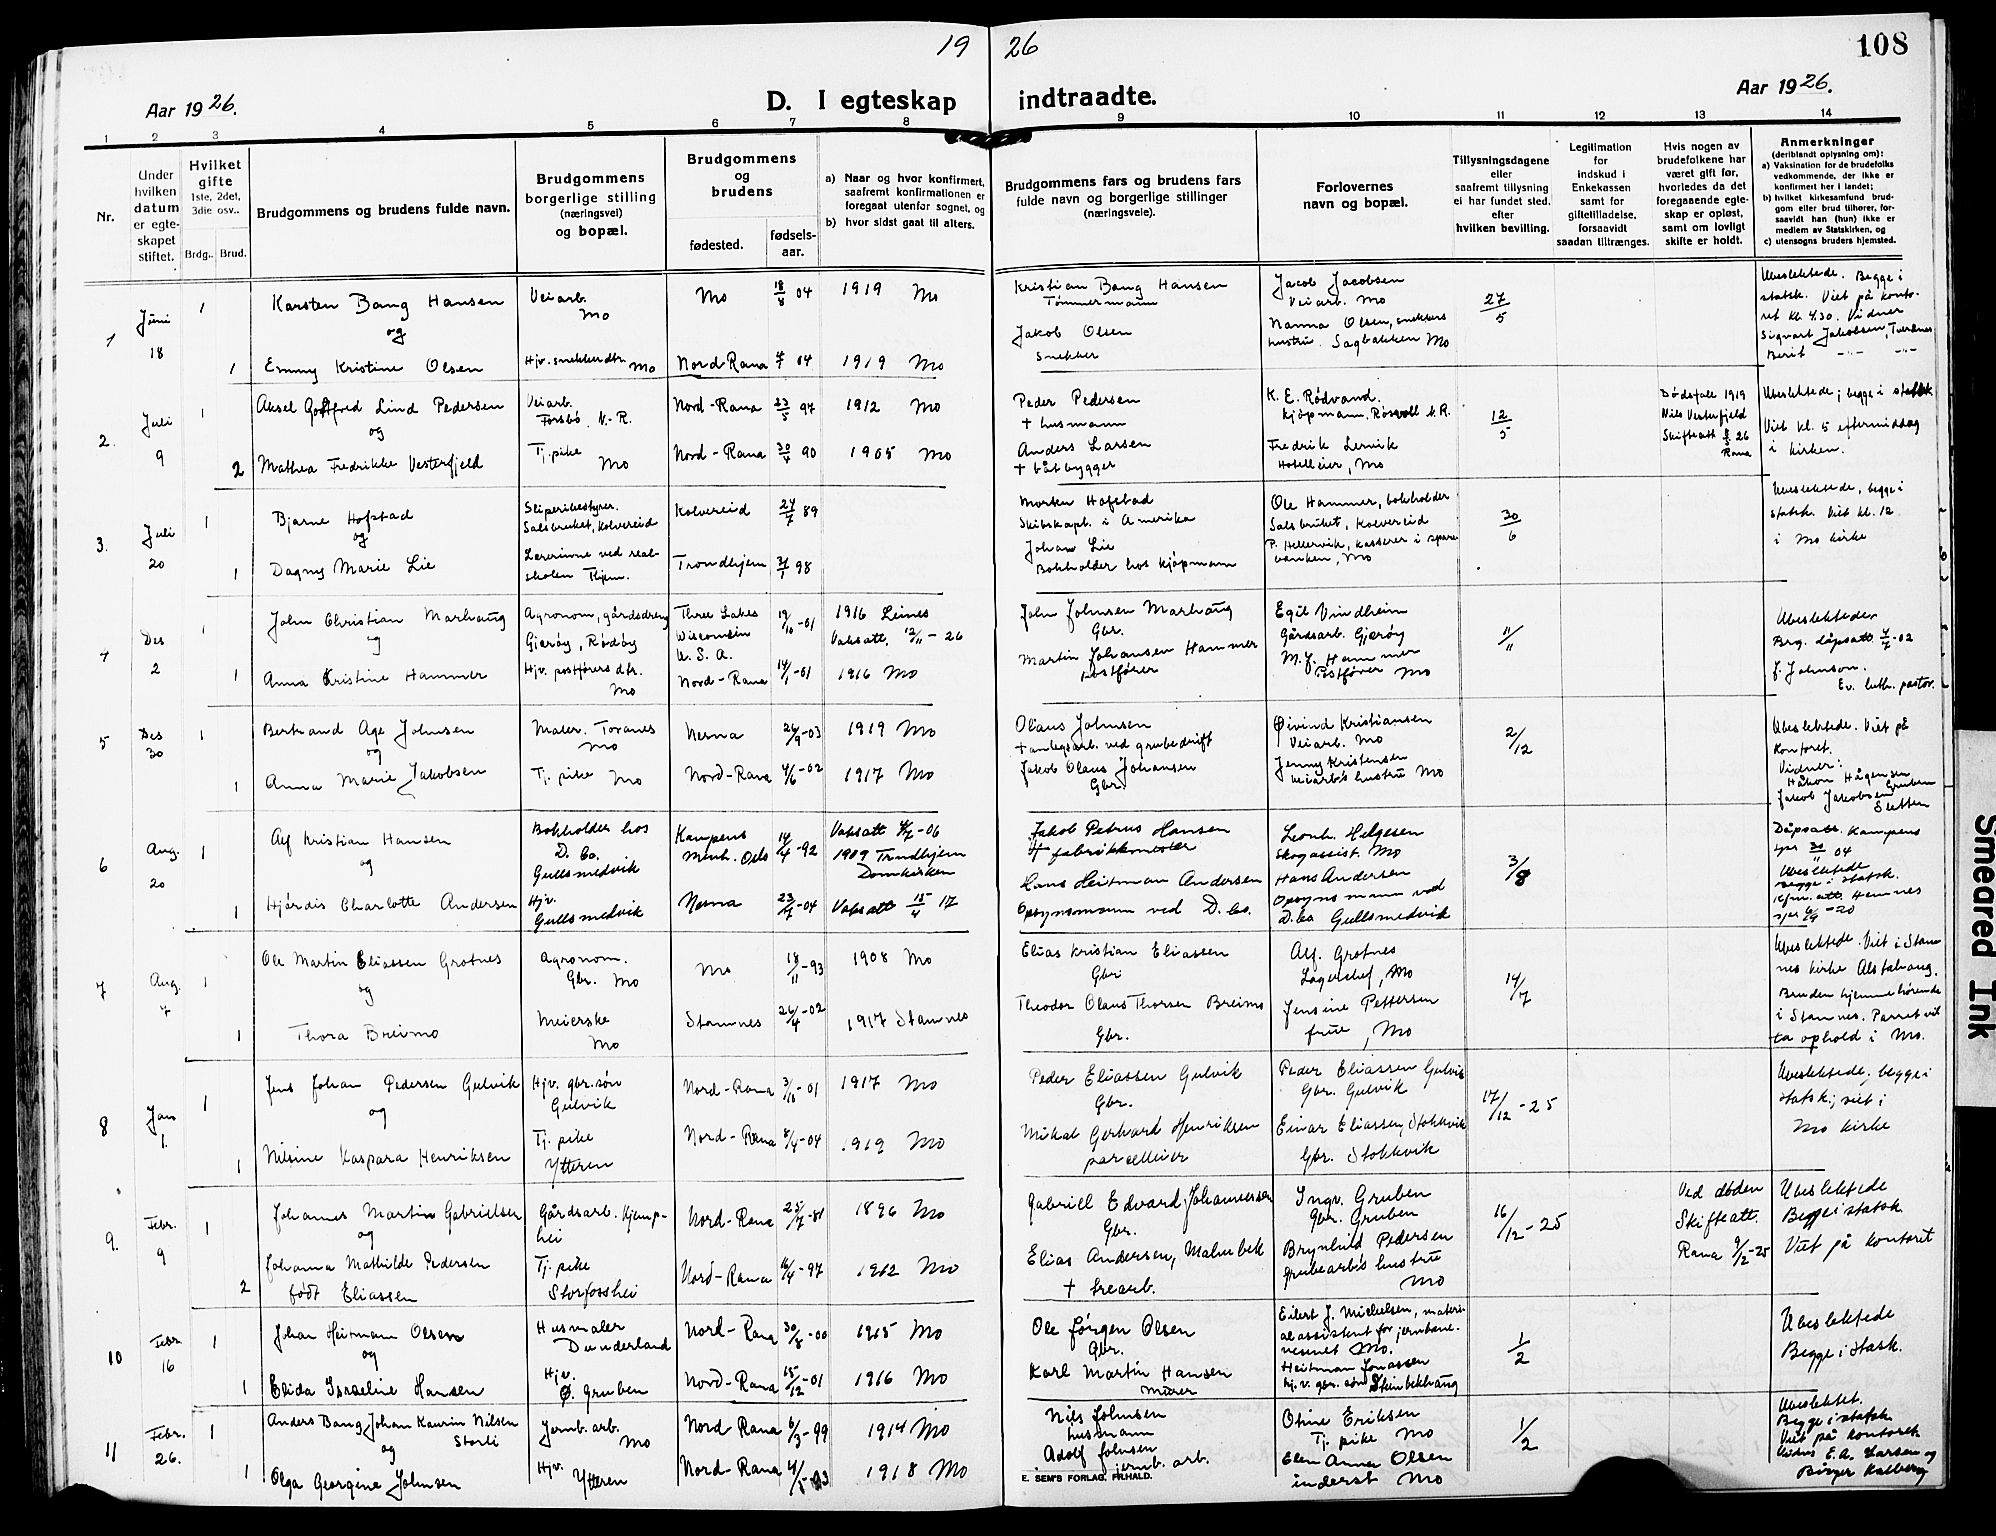 19 26
108
Aar 1926.
D. I egteskap indtraadte.
Aar 1926.
1 2 3 4 5 6 7 8 9 10 11 12 13 14
Nr.
Under hvilken datum er egteskapet stiftet.
Hvilket gifte
1ste, 2det, 3die osv..
Brdg.. Brud.
Brudgommens og brudens fulde navn.
Brudgommens borgerlige stilling
(næringsvei)
og bopæl.
Brudgommens og brudens
fødested.
fødsels-aar.
a) Naar og hvor konfirmert, saafremt konfirmationen er foregaat utenfor sognet, og
b) hvor sidst gaat til alters.
Brudgommens fars og brudens fars
fulde navn og borgerlige stillinger
(næringsveie).
Forlovernes
navn og bopæl.
Tillysningsdagene
eller
saafremt tillysning
ei har fundet sted.
efter
hvilken bevilling.
Legitimation
for
indskud i
Enkekassen
samt for
giftetilladelse,
forsaavidt
saadan tiltrænges.
Hvis nogen av
brudefolkene har
været gift før,
hvorledes da det
foregaaende egte-
skap er opløst,
samt om lovligt
skifte er holdt.
Anmerkninger
(deriblandt oplysning om):
a) Vaksination for de brudefolks
vedkommende, der ikke er
konfirmert her i landet;
b) hvilket kirkesamfund brud-
gom eller brud tilhører, for-
saavidt han (hun) ikke er
medlem av Statskirken, og
c) utensogns bruders hjemsted.
1 Juni 18
1 Karsten Bang Hansen Veiarb. Mo Mo 18/8 04 1919 Mo
og
1 Emmy Kristine Olsen Hjv. snekkerdtr. Mo Nord-Rana 04 1919 Mo
Kristian Bang Hansen
Tømmermann
Jakob Olsen
Snekker
Jacob Jacobsen
Veiarb. Mo
Nanna Olsen, snekkers
hustru. Sagbakken Mo
27/5
Ubeslektede. Begge i
statsk. Viet på konto-
ret kl. 4.30. Vidner
Sigvart Jakobsen, Tverånes
Berit
2. Juli 9
1 Aksel Gotfred Lind Pedersen Veiarb. Forsbø N.-R. Nord-Rana 23/5 97 1912 Mo
og
2 Mathea Fredrikke Vesterfjeld Tj. pike Mo Nord-Rana 30/4 90 1905 Mo
Peder Pedersen
+ husmann
Anders Larsen
+ båtbygger
K. E. Rødvand.
kjøpmann. Røsvoll N.R.
Fredrik Lervik
Hotelleier, Mo
12/5
Dødsfall 1919
Nils Vesterfjeld
Skifteatt 26
Rana
Ubeslektede; begge i statsk
Viet kl. 5 eftermiddag
i kirken.
3. Juli 20
1 Bjarne Hofstad Sliperibestyrer. Salsbruket, Kolvereid Kolvereid 24/7 89
og
1 Dagny Marie Lie Lærerinne ved real-skolen Hjem. Trondhjem 98
Morten Hofstad
Skibskapt. i Amerika
Johan Lie
Bokholder hos kjøpmann
Ole Hammer, bokholder
Salsbruket, Kolvereid
P. Hellervik, kasserer i spare-
banken, Mo
30/6
Ubeslektede, begge i
statsk. Viet kl. 12
i Mo kirke
4 Des 2
1 John Christian Marhaug Agronom, gårdsdreng Gjerøy, Rødøy Three Lakes Wisconsin U. S. A. 19/10-01 1916 Leines
Vaksatt. 12/11-26
og
1 Anna Kristine Hammer Hjv. postførers dtr. Mo Nord-Rana 14/1-01 1916 Mo
John Johnsen Marhaug
Gbr.
Martin Johansen Hammer
postfører
Egil Vindheim
Gårdsarb. Gjerøy
M. J. Hammer
Postfører Mo
11/11
Ubeslektede
Brg. dåpsatt. -02
J. Johnson.
Ev. luth. pastor.
5 Des 30
1 Bertrand Age Johnsen Maler. Toranes Mo Nesna 26/9-03 1919 Mo
og
1 Anna Marie Jakobsen Tj. pike Mo Nord-Rana 4/6-02 1917 Mo
Olaus Johnsen
+ anlegsarb. ved grubedrift
Jakob Olaus Johansen
Gbr.
Øivind Kristiansen
Veiarb. Mo
Jenny Kristensen
veiarb's hustru Mo
2/12
Ubeslektede. Viet på
kontoret.
Vidner:
Håkon Hågensen
Gruben
Jakob Jakobsen
Sletten
6 Aug. 20
1 Alf Kristian Hansen Bokholder hos D. Co. Gullsmedvik Kampens Menh. Oslo 14/4-92 Vaksatt -06
1909 Trondhjem
Domkirken
og
1 Hjørdis Charlotte Andersen Hjv. Gullsmedvik Nesna 23/7-04 Vaksatt 15/4 17
Jakob Petrus Hansen
+ fabrikkmester
Hans Heitman Andersen
Opsynsmann ved D. Co.
Leonh. Helgesen
Skogassist. Mo
Hans Andersen
Opsynsmann ved
D. Co Gullsmedvik
3/8
Dåpsatt. Kampens
30/11 04
Ubeslektede
begge i statsk.
Kfm. att. Hemnes
-20
7 Aug. 7
1 Ole Martin Eliassen Grotnes Agronom. Gbr. Mo Mo 18/11-93 1908 Mo
og
1 Thora Breimo Meierske Mo Stamnes 26/4-02 1917 Stamnes
Elias Kristian Eliassen
Gbr
Theodor Olaus Thorsen Breimo
Gbr.
Alf. Grotnes
Lagerchef, Mo
Jensine Pettersen
frue, Mo
14/7
Ubeslektede. Viet i Stam-
nes kirke Alstahaug.
Bruden hjemmehørende
i Stamnes. Parret vil
ta ophold i Mo.
8 Jan 1.
1 Jens Johan Pedersen Gulvik Hjv. gbr. søn Gulvik Nord-Rana 3/10-01 1917 Mo
og
1 Nilsine Kaspara Henriksen Tj. pike Ytteren Nord-Rana -04 1919 Mo
Peder Eliassen Gulvik
Gbr.
Mikal Gerhard Henriksen
parcelleier
Peder Eliassen Gulvik
Gbr. Gulvik
Einar Eliassen, Stokkvik
Gbr. Stokkvik
17/12-25
Ubeslektede; begge i
statsk.; viet i
Mo kirke
9. Febr. 9
1 Johannes Martin Gabrielsen Gårdsarb. Kjemp-hei Nord-Rana 25/7-81 1896 Mo
og
2 Johanna Mathilde Pedersen født Eliassen Tj. pike Storfosshei Nord-Rana 16/4-97 1912 Mo
Gabriel Edvard Johannessen
Gbr.
Elias Andersen, Malmbek
+ trearb.
Ingv. Gruben
Gbr. Gruben
Brynhild Pedersen
grubearb's hustru
Mo
16/12-25
Ved døden
Skifteatt.
Rana 9/12-25
Ubeslektede
Begge i statsk.
Viet på kontoret
10 Febr 16
1 Johan Heitmann Olsen Husmaler Dunderland Nord-Rana 30/8-00 1915 Mo
og
1 Elida Israeline Hansen Hjv. Ø. Gruben Nord-Rana 15/12-01 1916 Mo
Ole Jørgen Olsen
Gbr.
Karl Martin Hansen
Murer
Eilert J. Mickelsen, materi-
alassistent for jernbane-
vesenet Mo.
Heitman Jonassen
hj. v. gbr. søn Steinbekhaug
1/2
Ubeslektede
Begge i stask.
11 Febr. 26.
1 Anders Bang Johan Kaurin Nilsen Storli Jernb. arb. Mo Nord Rana 6/3-99 1914 Mo
og
1 Olga Georgine Johnsen Hjv. Ytteren Nord-Rana 1918 Mo
Nils Johnsen
husmann
Adolf Johnsen
jernb. arb.
Otine Eriksen
Tj. pike Mo
Elen Anna Olsen
inderst Mo
1/2
Ubeslektet.
Begge i statsk
Viet på kontoret
Vidner E. A. Larsen og
Birger Kalberg
E. SEM'S FORLAG, FR.HALD.
Smeared Ink